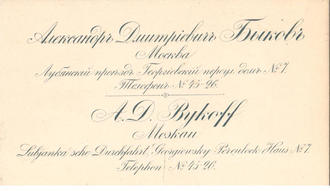 Александръ Дмитріевичъ Быковъ
Москва
Лубянскій проѣздъ Георгіевскій переул. домъ № 7.
Телефонъ № 45-26.
A. D. Bykoff
Moskau
Lubjanka'sche Durchfahrt Georgiewsky Pereulock Haus № 7.
Telephon № 45-26.